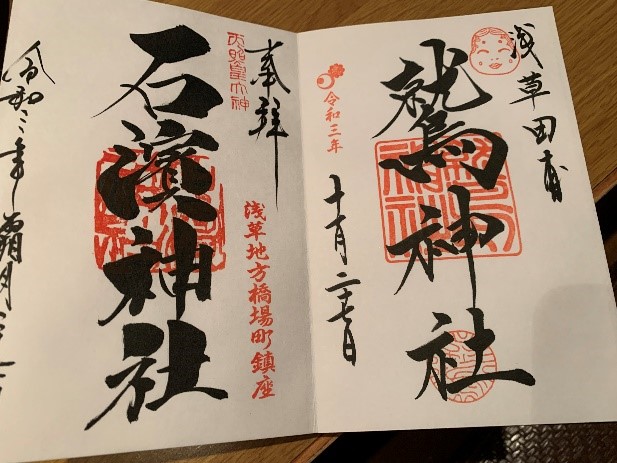 浅草田甫
鷲神社
令和三年
十月二十七日
奉拝
浅草地方橋場町鎮座
天照皇大神
石濱神社
令和三年霜月